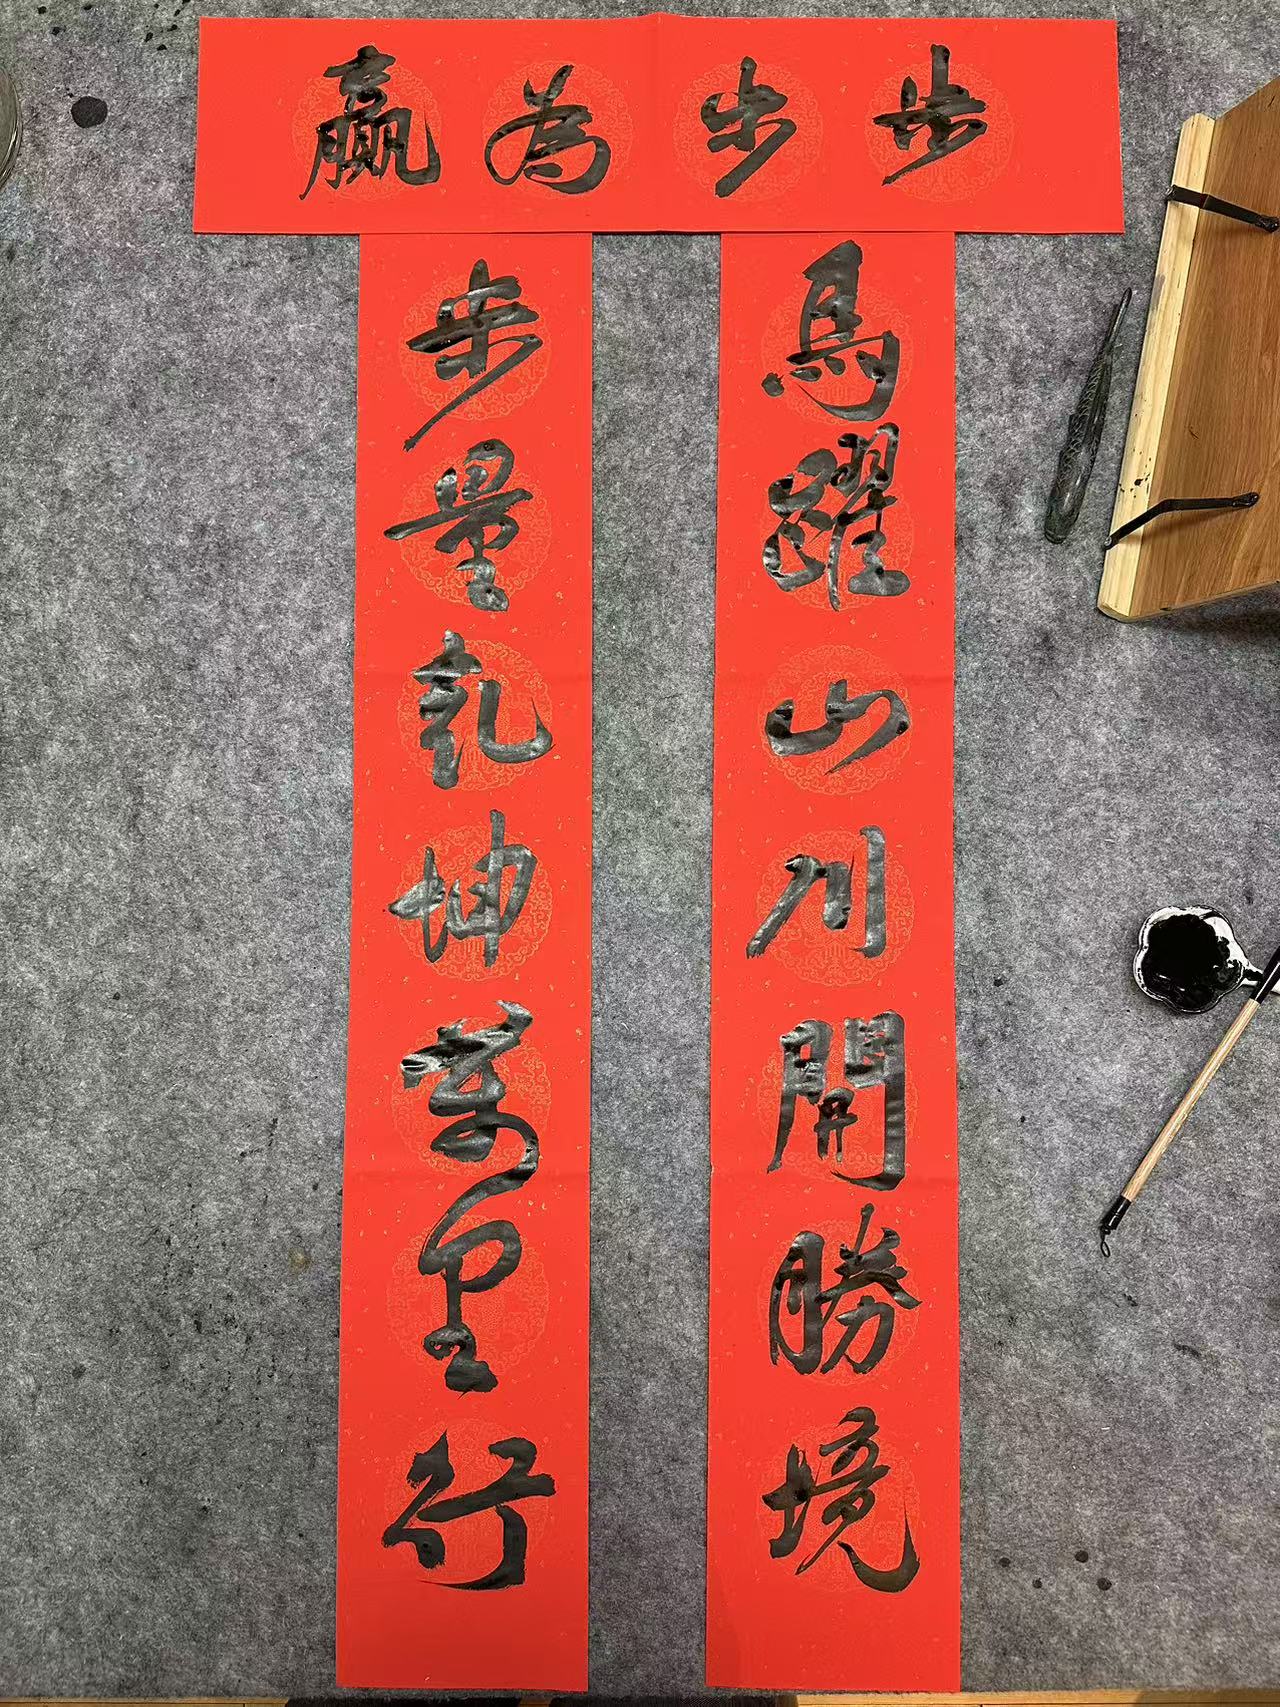 步步為赢
馬躍山川開勝境
步量乾坤萬里行